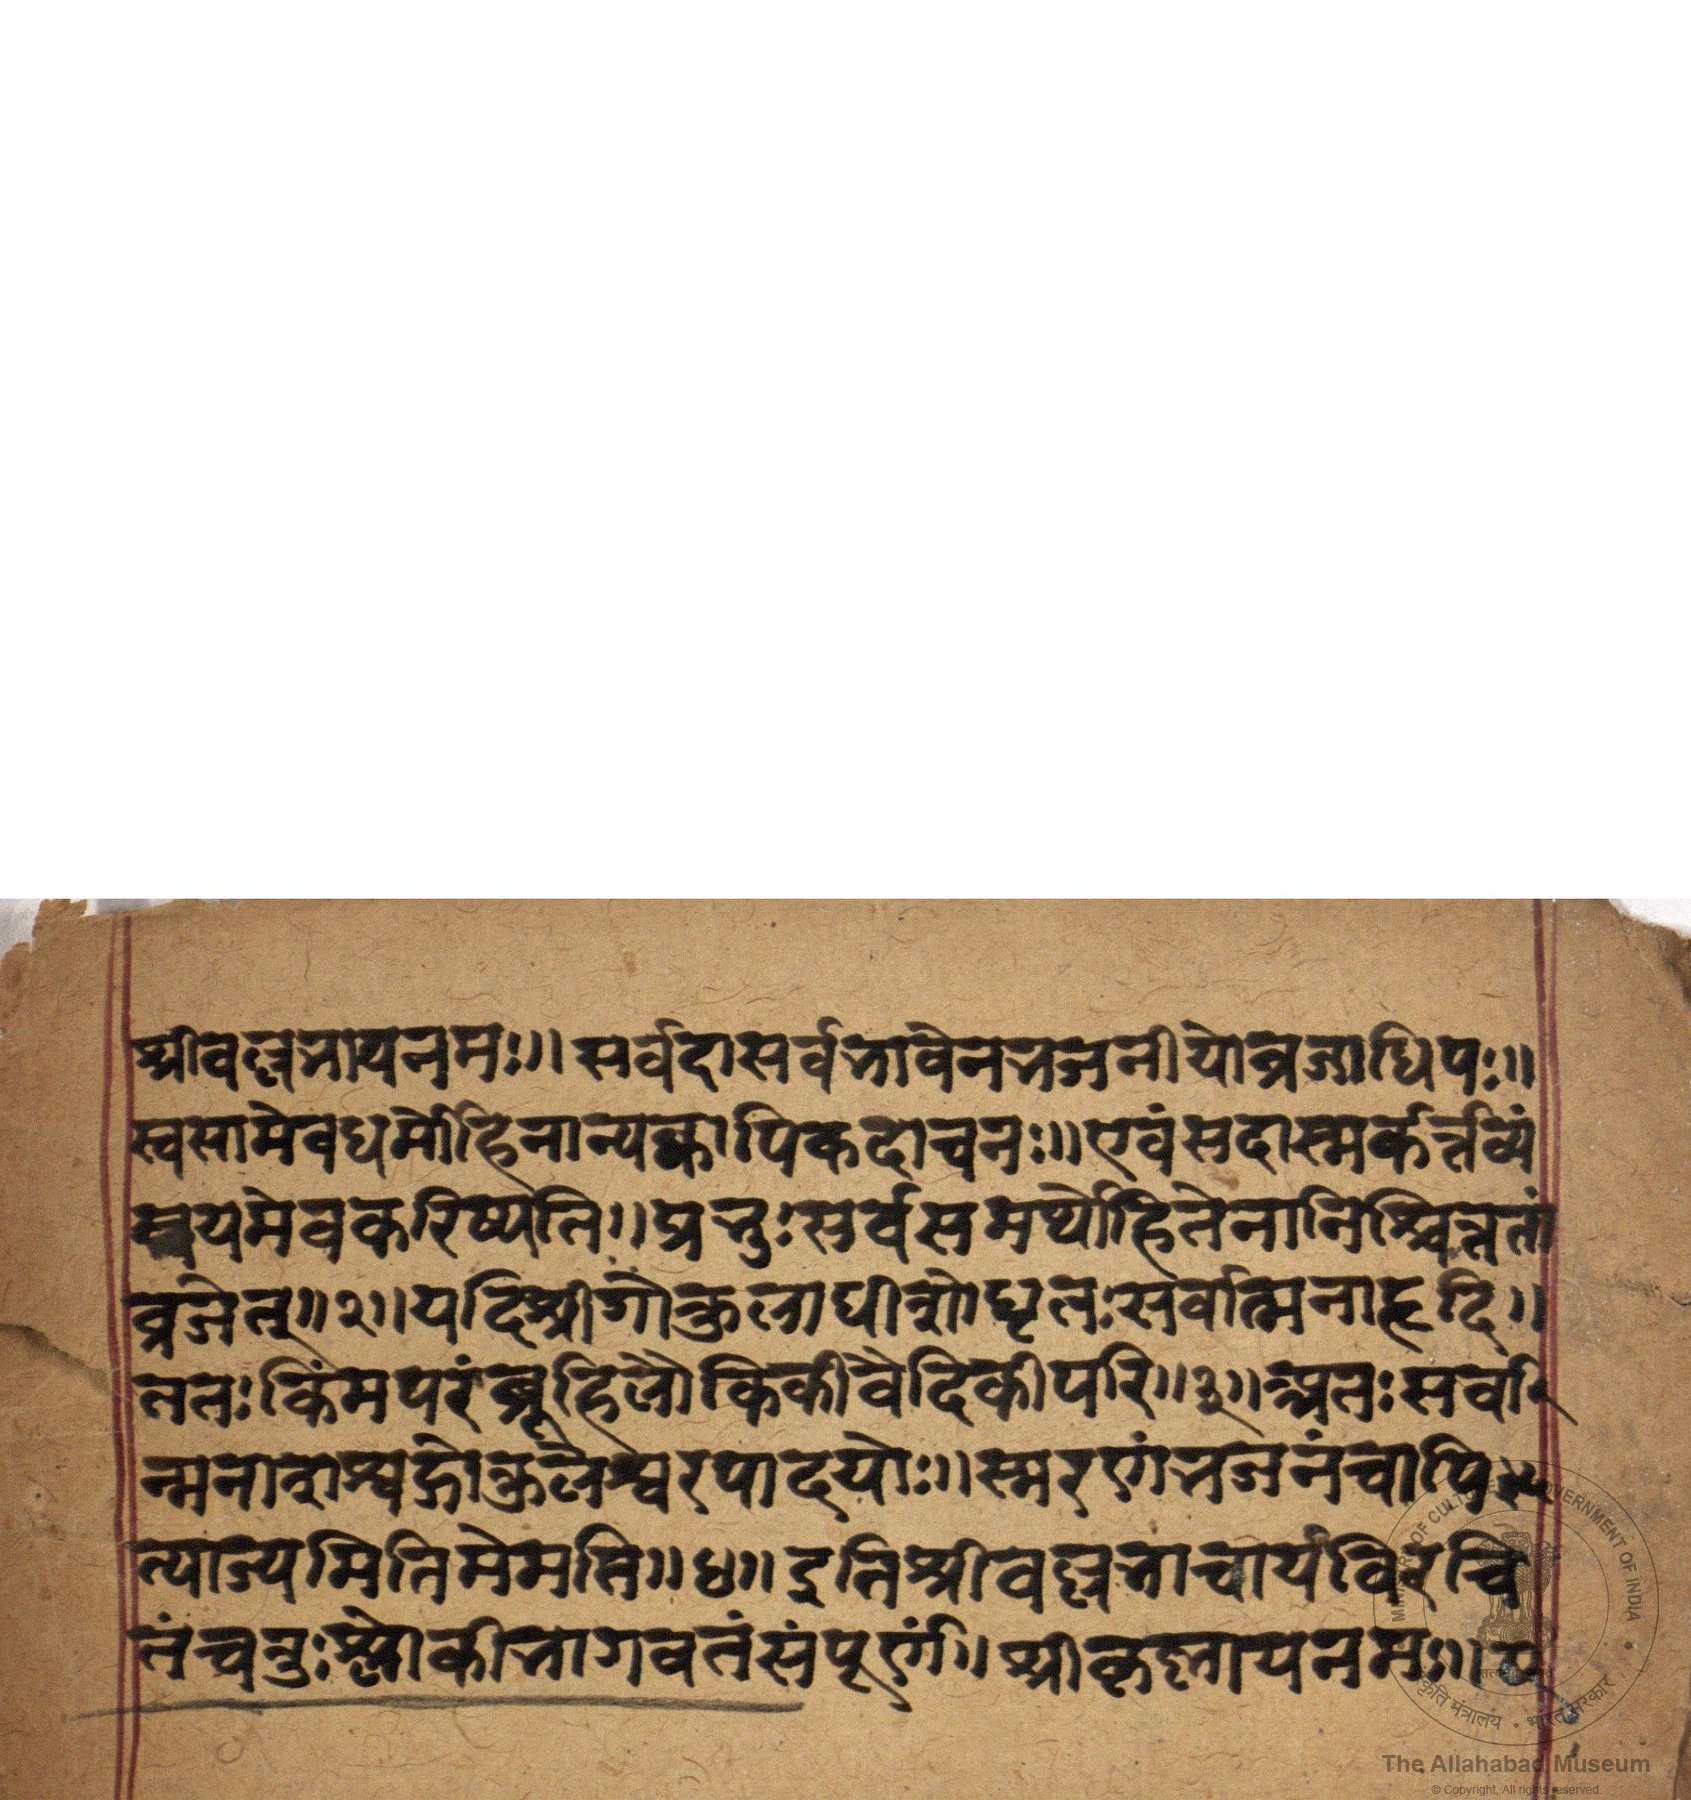 श्रीवल्लभायनमः।। सर्वदासर्वभावेनभजनीयोब्रजाधिपः।।
स्वसामेवधर्मोहिनान्यक्वापिकदाचनः।।एवंसदास्मर्कर्त्तव्यं
स्वयमेवकरिष्यति।।प्रभुःसर्वसमर्थ्योहितेनानिश्चिन्ततां
व्रजेत्।।२।।यदिश्रीगोकुलाधीशोधृतःसर्वात्मनाहृदि।।
ततःकिंमपरंब्रूहिलौकिकीवेदिकीपरि।।३।।अतःसर्वा
न्मनाशश्वद्गोकुलेश्वरपादयोः।।स्मरणंभजनंचापि
त्याज्यमितिमेमति।।४।। इतिश्रीवल्लभाचार्यविरचि
तंचतुःश्लोकीभागवतंसंपूर्णं।। श्रीकृष्णायनमः।।
MINISTRY OF CULTURE GOVERNMENT OF INDIA
संस्कृति मंत्रालय · भारत सरकार
The Allahabad Museum
© Copyright, All rights reserved.